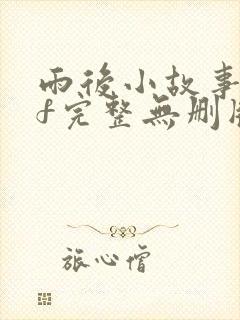 雨後小故事
f完整無刪
旅心僧